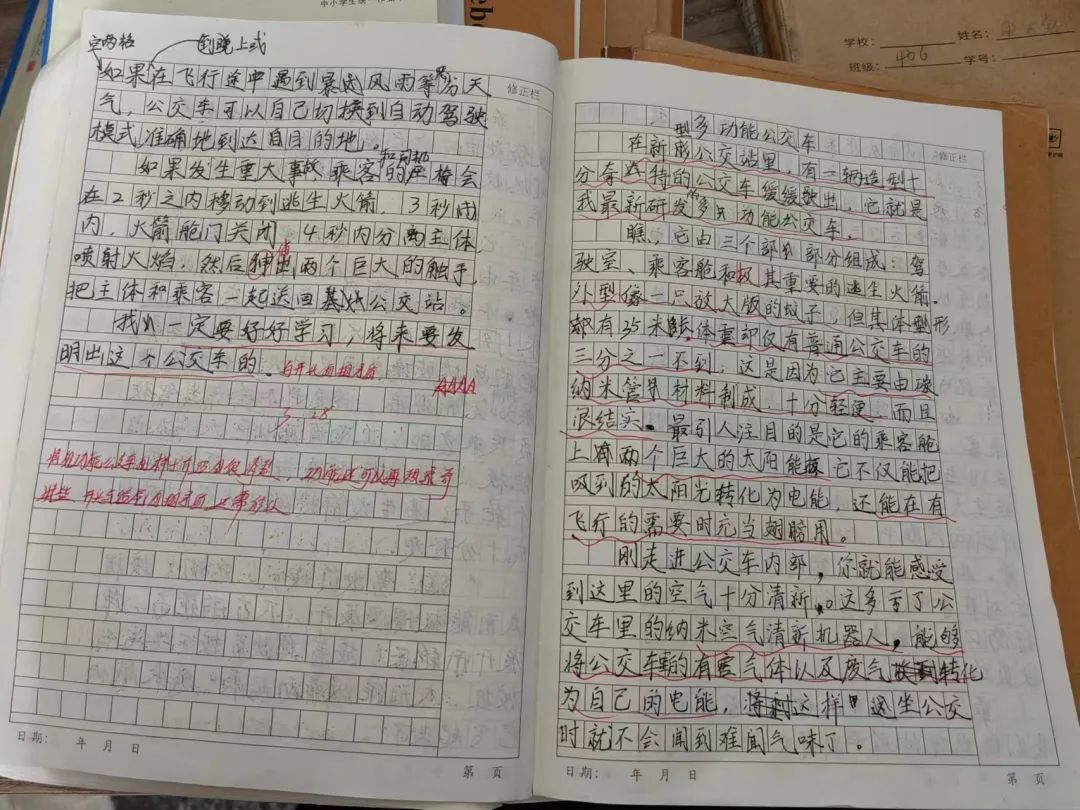 中小学生
学校：
姓名：
班级：406
学号：
空两格
到晚上或
如果在飞行途中遇到暴风雨等天
气，公交车可以自己切换到自动驾驶
模式，准确地到达目的地。
和司机
如果发生重大事故，乘客的座椅会
在2秒之内移动到逃生火箭，3秒内
内，火箭舱门关闭，4秒内分离主体，
喷射火焰，然后伸出两个巨大的触手，
把主体和乘客一起送回公交站。
我一定要好好学习，将来要发
明出这个公交车的。
AAAA
3.28
修正栏
日期： 年 月 日
第 页
多功能公交车
修正栏
型
在新形公交站里，有一辆造型十
分奇特的公交车缓缓驶出，它就是
我最新研发的多功能公交车。
瞧，它由三个部分组成：驾
驶室、乘客舱和极其重要的逃生火箭。
外型像一只放大版的蚊子，但其体型形
都有35米长，体重却仅有普通公交车的
三分之一不到，这是因为它主要由碳
纳米管材料制成，十分轻便，而且
很结实。最引人注目的是它的乘客舱
上两个巨大的太阳能板，它不仅能把
吸到的太阳光转化为电能，还能在有
飞行的需要时充当翅膀用。
刚走进公交车内部，你就能感受
到这里的空气十分清新。这多亏了公
交车里的纳米空气清新机器人，能够
将公交车的有害气体以及废气转化
为自己的电能，这样坐公交
时就不会闻到难闻气味了。
日期： 年 月 日
第 页